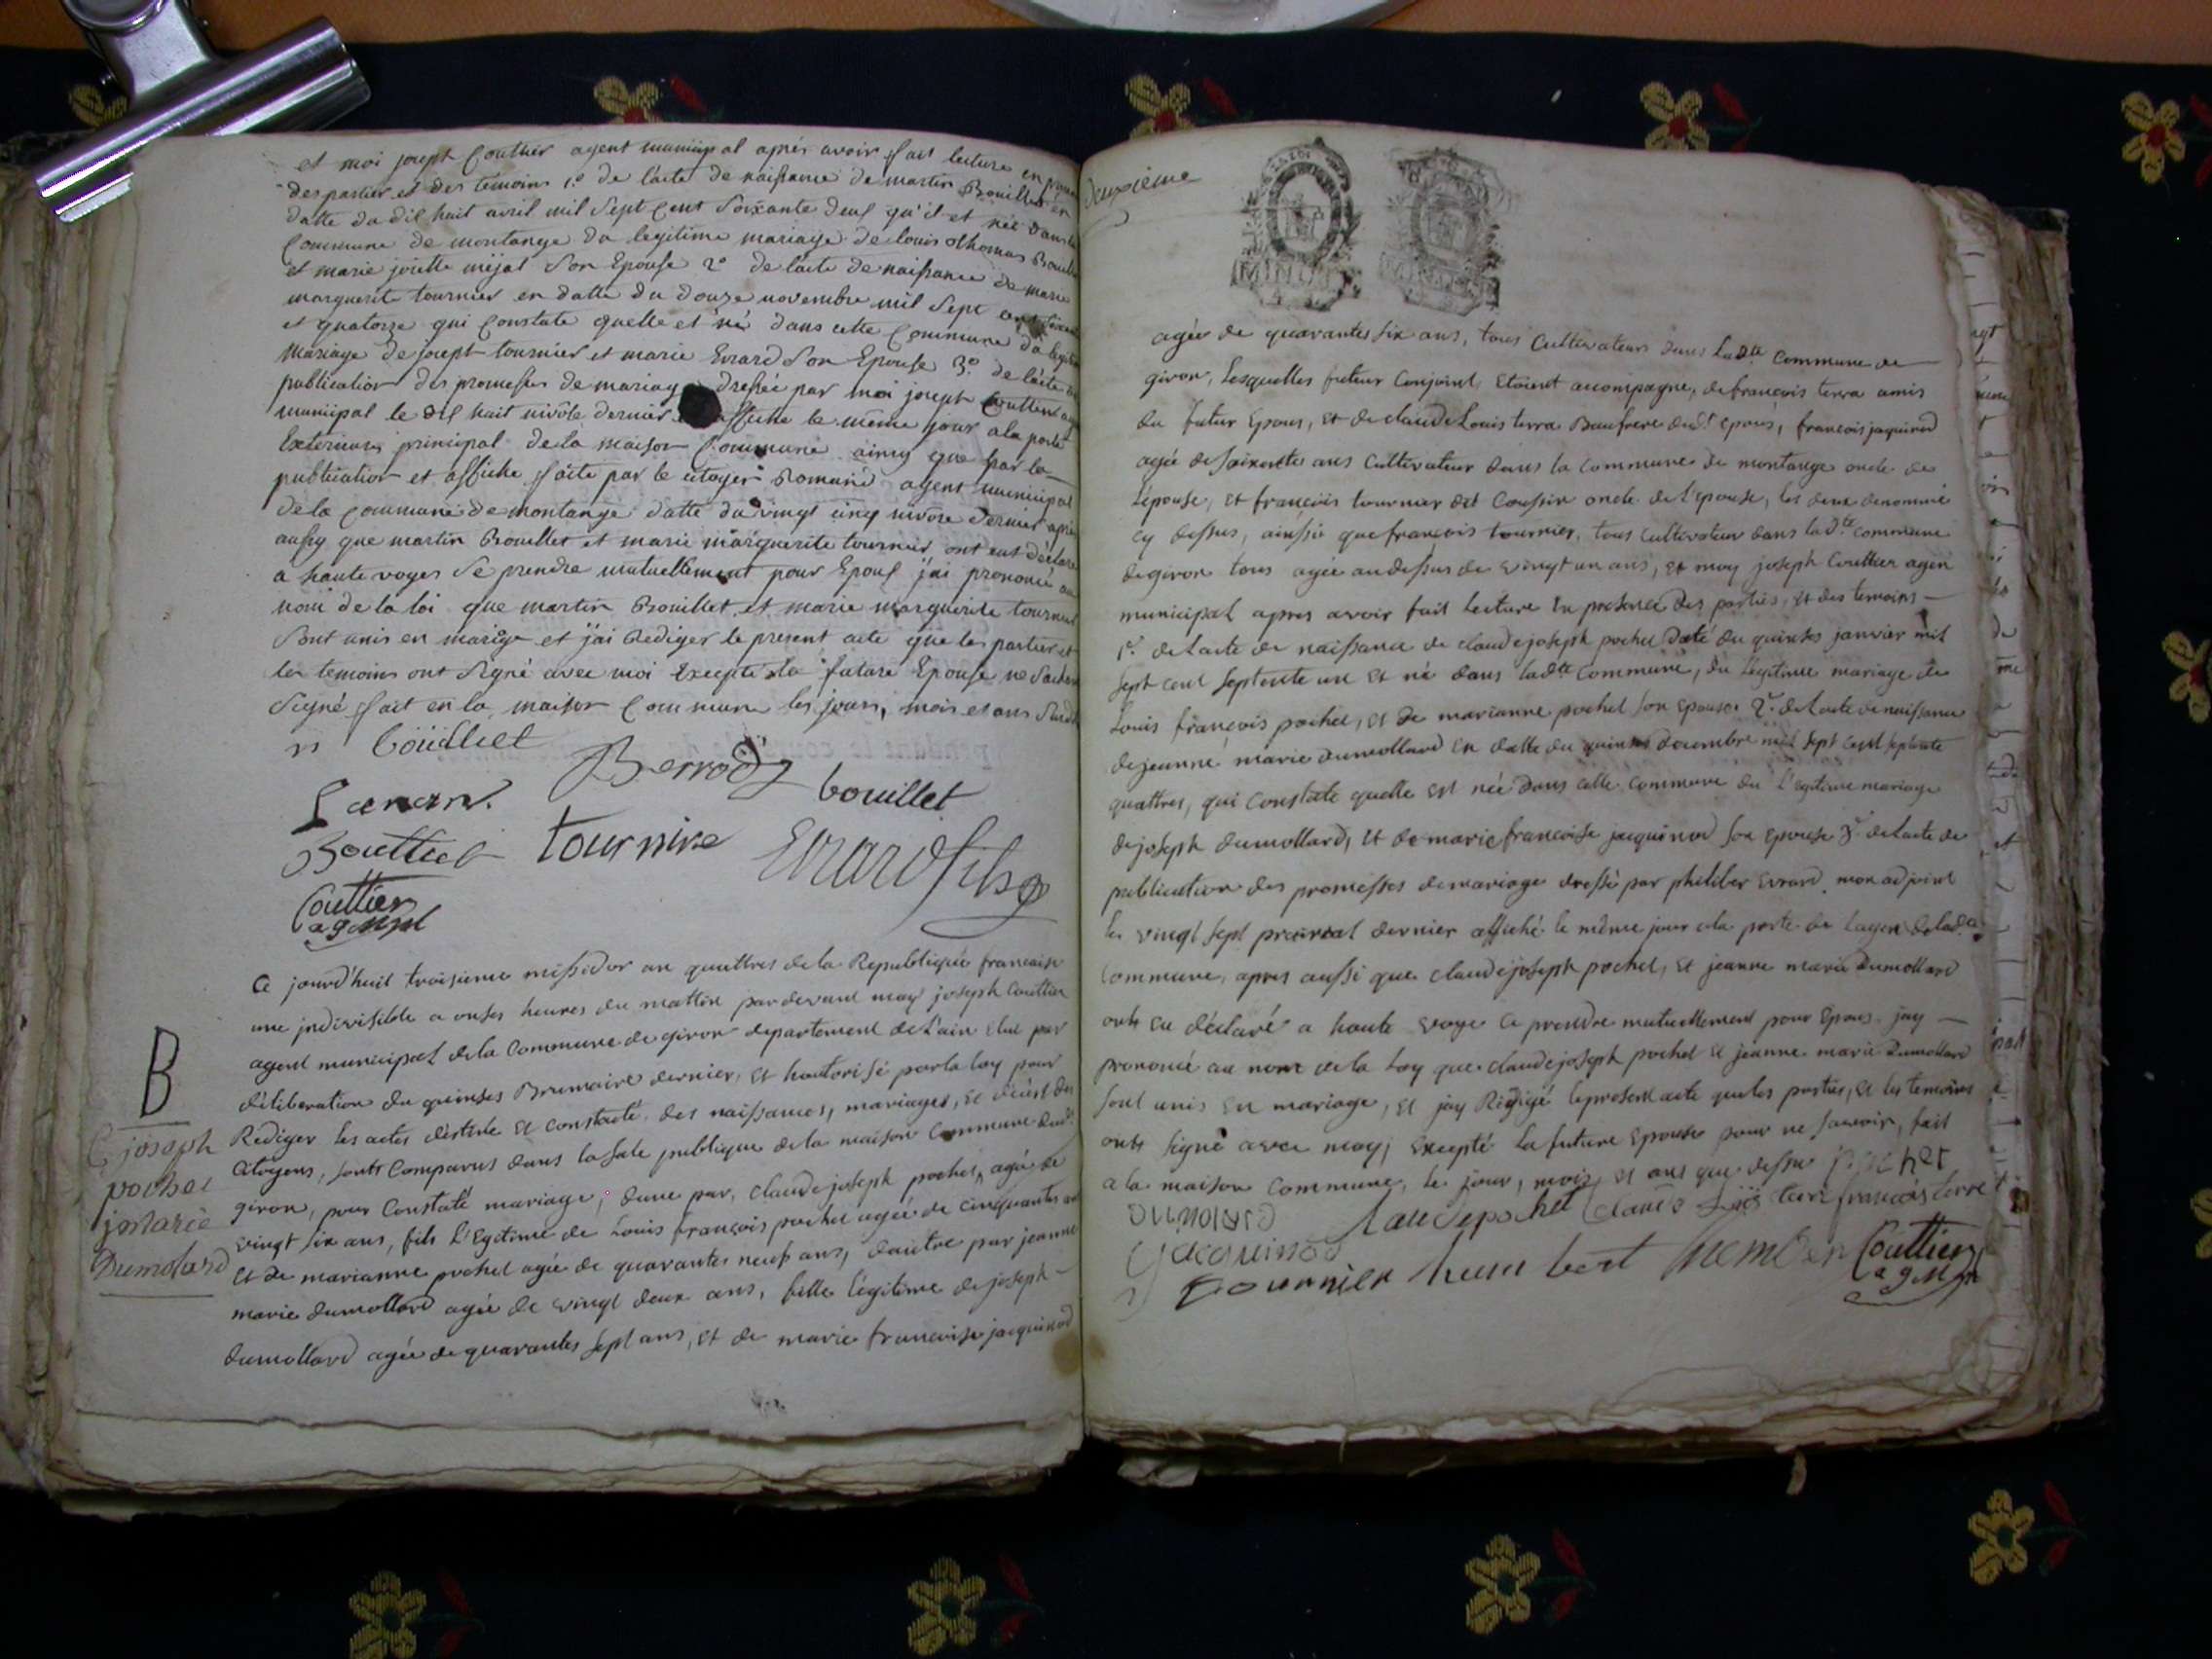 et moi josept Couttier agent municipal après avoir fait lecture en
des partier et des temoins 1.º de l'acte de naissance de martin Brouillet en
datte du dil huit avril mil Sept cent Soixante deuf qu'il et née dans la
Commune de montange du legitime mariage de louis thomas
et marie josette mejat Son Epouse 2º de l'acte de naissance de marie
marguerite tournier en datte du douze novembre mil Sept cent
et quatorze qui Constate quelle et née dans cette Commune du
Mariage de josept tournier et marie Evrard Son Epouse 3º de l'acte de
publication des promesses de mariage dressée par moi josept Couttier
municipal le dil huit nivôse dernier affiche le même jour a la porte
Exterieure principal de la maison Commune ainsy que par la
publication et affiche faite par le citoyen Romand agent municipal
de la Commune de montange datte du vingt cinq nivôse dernier après
aussy que martin Brouillet et marie marguerite tournier ont eut déclaré
a haute voyes Se prendre mutuellement pour Epouf j'ai prononcé au
nom de la loi que martin Brouillet et marie marguerite tournier
Sont unis en mariage et j'ai Rediger le present acte que les partier et
les temoins ont Signé avec moi Excepté la future Epouse ne Sachant
Signé fait en la maison Commune les jours, mois et ans Susdit
Berrod
bouillet
tournire
Evrard fils
Couttier
agMpl
Ce jourd'huit troisieme missidor an quattres de la Republique francaise
une indivisible a onses heures du mattin pardevant moy joseph Couttier
agent municipal de la Commune de giron departement de L'ain elue par
déliberation du quinses Brumaire dernier, et hautorisé par la loy pour
Rediger les actes destiné et constaté des naissances, mariages, et décest des
Citoyens, sont Comparus dans la sale publique de la maison Commune dudt
giron, pour Constaté mariage, dune par, claude joseph pochet, agée de
vingt six ans, fils L'Egitime de Louis françois pochet agée de cinquantes ans
et de marianne pochet agée de quarantes neuf ans, dautre par jeanne
marie dumollard agée de vingt deux ans, fille légitime de joseph
dumollard agée de quarantes sept ans, et de marie francoise jacquinod
B
C joseph
pochet
j marie
Dumolard
deuxieme
agée de quarantes six ans, tous Cultivateurs dans ladtte Commune de
giron, Lesquelles futeur Conjoint, etoient accompagne, de françois terra amis
du futur Epous, et de claude Louis terra Beaufrere dudt epous, francois jaquinod
agée de soixantes ans Cultivateur dans la Commune de montange oncle de
Lépouse, et francois tournier dit Coussin oncle de L'epouse, les deux denommé
cy dessus, ainssie que francois tournier, tous Cultivateur dans la dte Commune
de giron tous agee audessus de vingt un ans, et moy joseph Couttier agen
municipal apres avoir fait lecture en presence des parties, et des temoins
1º de Lacte de naissance de claude joseph pochet daté du quinses janvier mil
sept cent septente un et né dans ladtte Commune, du Legitime mariage de
Louis françois pochet, et de marianne pochet son epouse 2º de Lacte de naissance
de jeanne marie dumollard en datte du quinses decembre mil sept cent septente
quattres, qui Constate quelle est née dans cette Commune du L'egitime mariage
de joseph dumollard, et de marie francoise jacquinod son epouse 3º de Lacte de
publication des promesses de mariage dressé par philiber Evrard mon adjoint
le vingt sept prairial dernier affiché le même jour a la porte de Lagen de lad.e
Commune, apres aussi que claude joseph pochet, et jeanne marie Dumollard
onts eu déclaré a haute voye Ce prendre mutuellement pour Epous jay
prononcé au nom de la Loy que claude joseph pochet et jeanne marie Dumollard
sont unis en mariage, et jay Rédigé le present acte que les parties, et les temoins
onts signé avec moy, excepté La future Epouse pour ne sçavoir, fait
a la maison Commune, le jour, mois, et ans que dessus pochet
dumolard Claude pochet francois terre
jacquinod
tournier humbert Couttier
agMpl